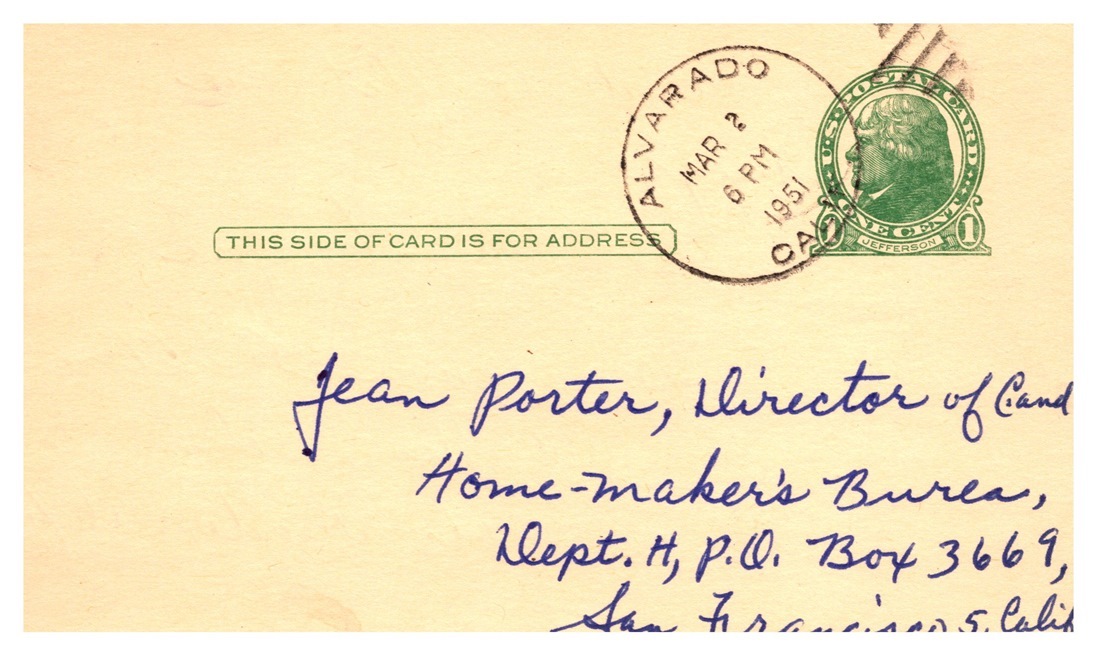 ALVARADO
MAR 2
6 PM
1951
CALIF.
U.S. POSTAL CARD
ONE CENT
1 1
JEFFERSON
THIS SIDE OF CARD IS FOR ADDRESS
Jean Porter, Director of C.and
Home-maker's Burea,
Dept. H, P.O. Box 3669,
San Francisco 5, Calif